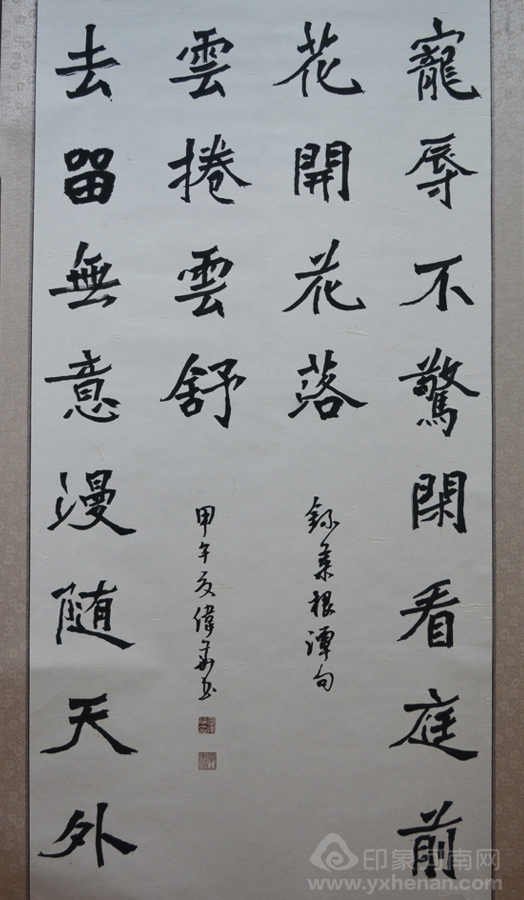 寵辱不驚閑看庭前
花開花落
去留無意漫随天外
雲捲雲舒
錄菜根潭句
甲午夏偉書
印象河南网
www.yxhenan.com